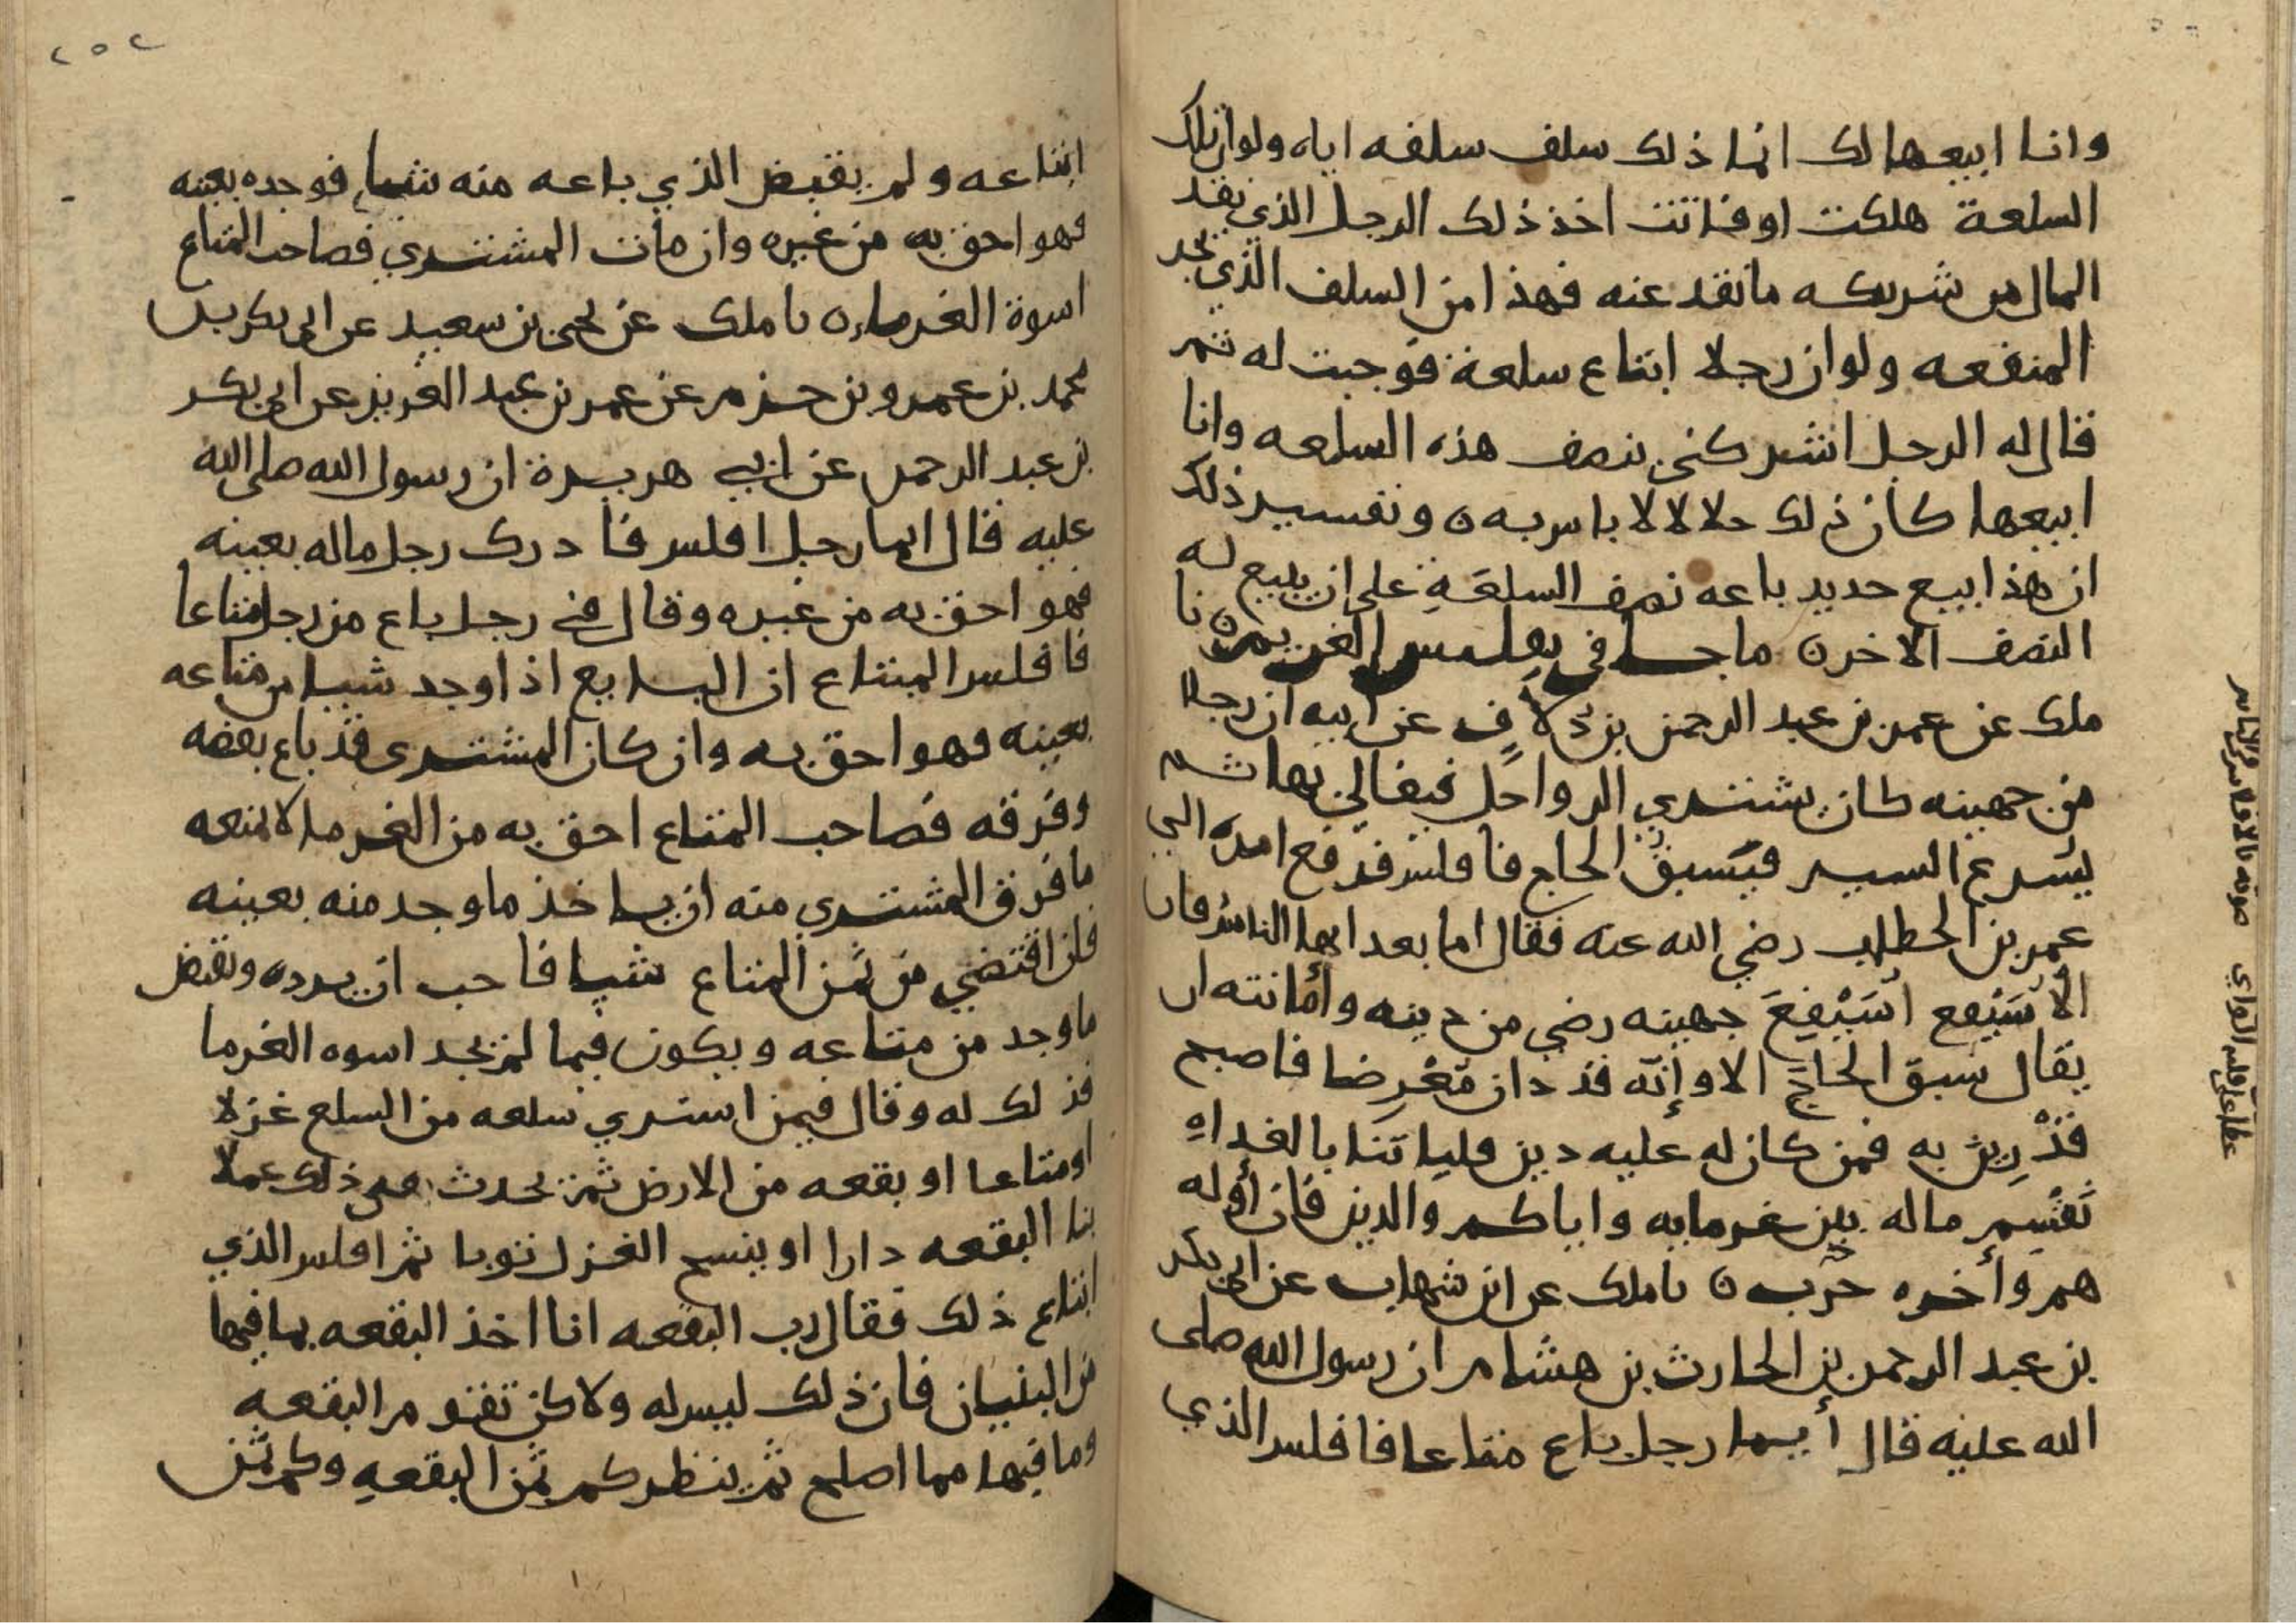 وانا ابيعها لك انما ذلك سلف سلفه اياه ولو ان تلك
السلعة هلكت او فاتت اخذ ذلك الرجل الذي نقد
المال من شريكه ما نقد عنه فهذا من السلف الذي يجر
المنفعه ولو ان رجلا ابتاع سلعة فوجبت له ثم
قال له الرجل اشركني بنصف هذه السلعه وانا
ابيعها كان ذلك حلالا لا باس به ن وتفسير ذلك
ان هذا بيع جديد باعه نصف السلعة على ان يبيع له
النصف الاخر ن ما جا في تفليس الغريم ن نا
ملك عن عمر بن عبد الرحمن بن دلاف عن ابيه ان رجلا
من جهينه كان يشتري الرواحل فيغالي بها ثم
يسرع السير فيسبق الحاج فافلس فرفع امره الى
عمر بن الخطاب رضي الله عنه فقال اما بعد ايها الناس فان
الاسيفع اسيفع جهينه رضي من دينه وامانته ان
يقال سبق الحاج الا وإنه قد دان معرضا فاصبح
قد رين به فمن كان له عليه دين فلياتنا بالغداه
نقسم ماله بين غرمايه واياكم والدين فان أوله
هم وأخره حرب ن نا ملك عن ابن شهاب عن ابي بكر
بن عبد الرحمن بن الحارث بن هشام ان رسول الله صلى
الله عليه قال أيما رجل باع متاعا فافلس الذي
٢٥٢
ابتاعه ولم يقبض الذي باعه منه شيا فوجده بعينه
فهو احق به من غيره وان مات المشتري فصاحب المتاع
اسوة الغرما ن نا ملك عن يحيى بن سعيد عن ابي بكر بن
محمد بن عمرو بن حزم عن عمر بن عبد العزيز عن ابي بكر
بن عبد الرحمن عن ابي هريرة ان رسول الله صلى الله
عليه قال ايما رجل افلس فادرك رجل ماله بعينه
فهو احق به من غيره وقال في رجل باع من رجل متاعا
فافلس المبتاع ان البايع اذا وجد شيا من متاعه
بعينه فهو احق به وان كان المشترى قد باع بعضه
وفرقه فصاحب المتاع احق به من الغرما لا يمنعه
ما فرق المشتري منه ان ياخذ ما وجد منه بعينه
فان اقتضي من ثمن المتاع شيا فاحب ان يرده ويقبض
ما وجد من متاعه ويكون فيما لم يجد اسوه الغرما
فذلك له وقال فيمن اشتري سلعه من السلع غزلا
او متاعا او بقعه من الارض ثم يحدث في ذلك عملا
بنا البقعه دارا او ينسج الغزل ثوبا ثم افلس الذي
ابتاع ذلك فقال رب البقعه انا اخذ البقعه بما فيها
من البنيان فان ذلك ليس له ولاكن تقوم البقعه
وما فيها مما اصلح ثم ينظر كم ثمن البقعه وكم ثمن